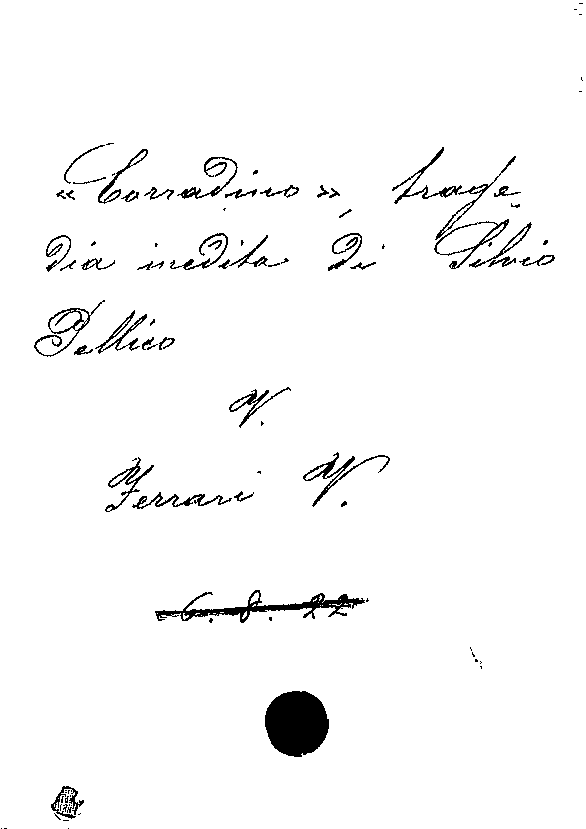 «Corradino», trage-
dia inedita di Silvio
Pellico
V.
Ferrari V.
6. 8. 22